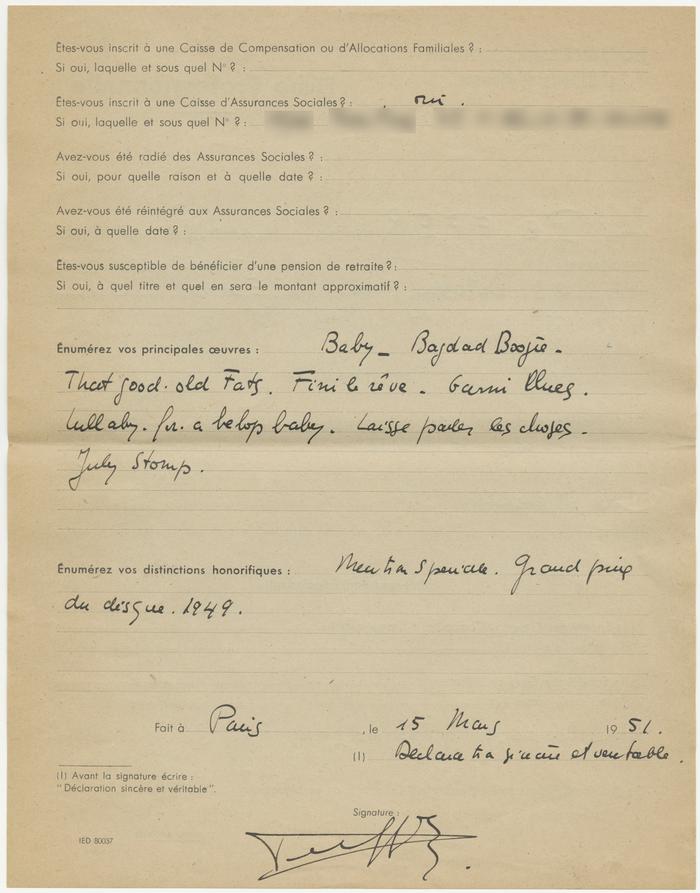 Êtes-vous inscrit à une Caisse de Compensation ou d'Allocations Familiales ? :
Si oui, laquelle et sous quel N° ? :
Êtes-vous inscrit à une Caisse d'Assurances Sociales ? : oui.
Si oui, laquelle et sous quel N° ? :
Avez-vous été radié des Assurances Sociales ? :
Si oui, pour quelle raison et à quelle date ? :
Avez-vous été réintégré aux Assurances Sociales ? :
Si oui, à quelle date ? :
Êtes-vous susceptible de bénéficier d'une pension de retraite ? :
Si oui, à quel titre et quel en sera le montant approximatif ? :
Énumérez vos principales œuvres : Baby - Bagdad Boogie -
That good. old Fats. Fini le rêve - Garni Blues.
Lullaby. for. a bebop baby. Laisse parler les choses -
July Stomp.
Énumérez vos distinctions honorifiques : Mention Spéciale. Grand prix
du disque. 1949.
Fait à Paris , le 15 Mars 1951.
(1) Déclaration sincère et véritable.
(1) Avant la signature écrire :
"Déclaration sincère et véritable".
Signature :
IED 80037